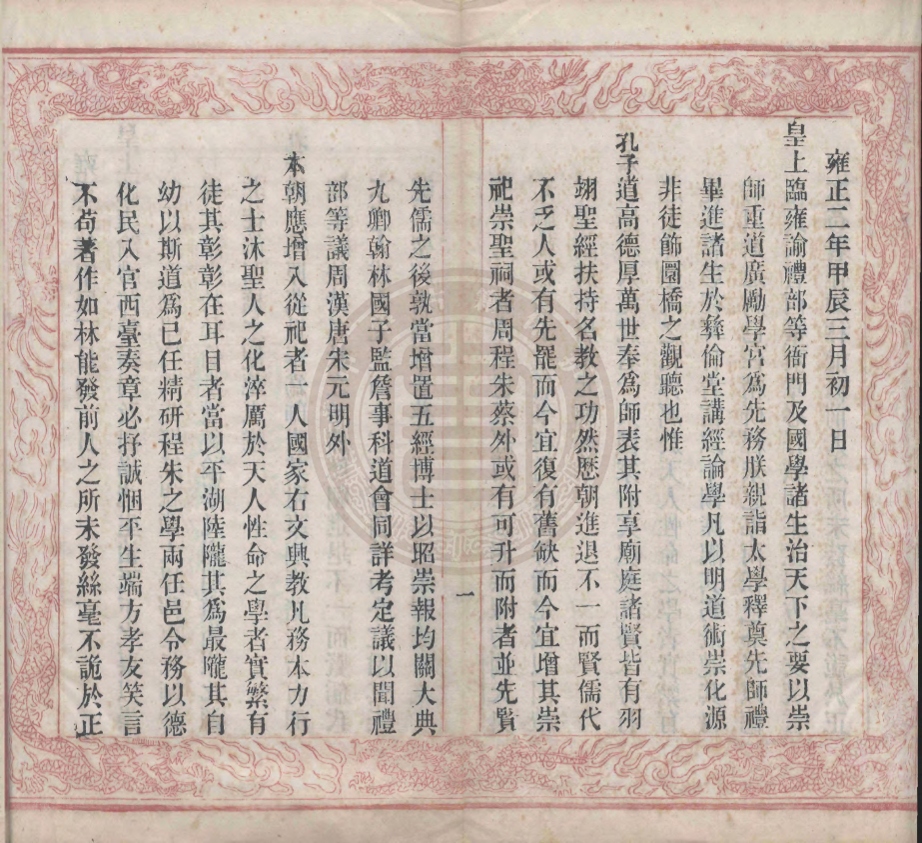 雍正二年甲辰三月初一日
皇上臨雍諭禮部等衙門及國學諸生治天下之要以崇
師重道廣勵學宮爲先務朕親詣太學釋奠先師禮
畢進諸生於彝倫堂講經論學凡以明道術崇化源
非徒飾圜橋之觀聽也惟
孔子道高德厚萬世奉爲師表其附享廟庭諸賢皆有羽
翊聖經扶持名教之功然歷朝進退不一而賢儒代
不乏人或有先罷而今宜復有舊缺而今宜增其崇
祀崇聖祠者周程朱蔡外或有可升而附者並先賢
一
先儒之後孰當增置五經博士以昭崇報均關大典
九卿翰林國子監詹事科道會同詳考定議以聞禮
部等議周漢唐宋元明外
本朝應增入從祀者一人國家右文典教凡務本力行
之士沐聖人之化淬厲於天人性命之學者實繁有
徒其彰彰在耳目者當以平湖陸隴其爲最隴其自
幼以斯道爲已任精研程朱之學兩任邑令務以德
化民入官西臺奏章必抒誠悃平生端方孝友笑言
不苟著作如林能發前人之所未發絲毫不詭於正